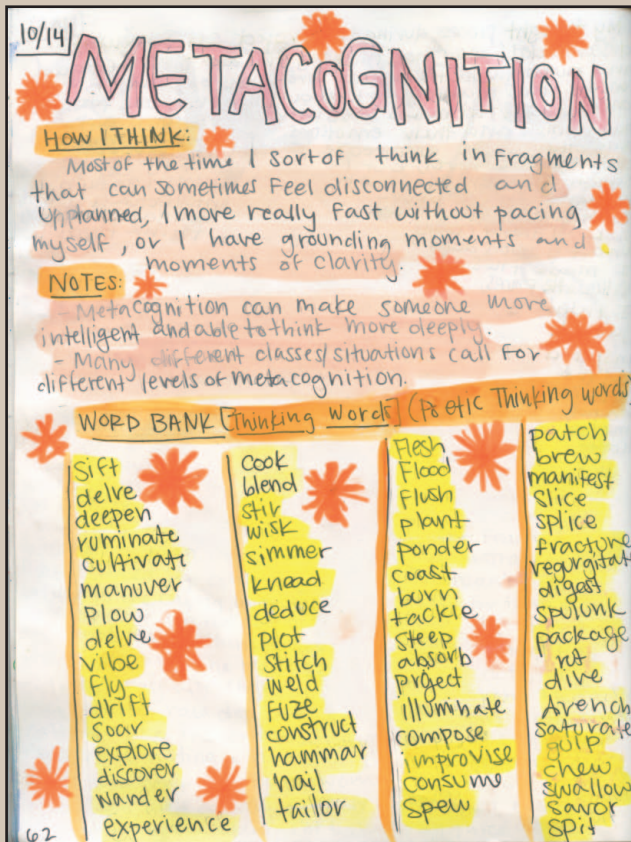 10/14
METACOGNITION
HOW I THINK:
Most of the time I sort of think in fragments
that can sometimes feel disconnected and
unplanned, I move really fast without pacing
myself, or I have grounding moments and
moments of clarity.
NOTES:
- Metacognition can make someone more
intelligent and able to think more deeply.
- Many different classes/situations call for
different levels of metacognition.
WORD BANK [Thinking words] (Poetic Thinking words)
Sift
delve
deepen
ruminate
cultivate
manuver
Plow
delve
vibe
fly
drift
soar
explore
discover
wander
experience
cook
blend
stir
wisk
simmer
knead
deduce
plot
stitch
weld
fuze
construct
hammar
nail
tailor
Flesh
Flood
flush
plant
ponder
coast
burn
tackle
steep
absorb
project
illuminate
compose
improvise
consume
spew
patch
brew
manifest
slice
splice
fracture
regurgitate
digest
spulunk
package
rot
dive
drench
saturate
gulp
chew
swallow
savor
spit
62